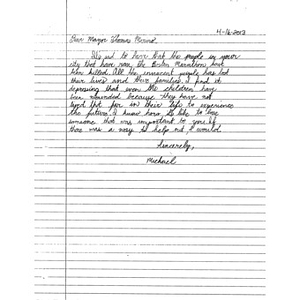 4-16-2013
Dear Mayor Thomas
It's sad to hear that the people in your
city that have ran the Boston Marathon had
been killed. All the innocent people has lost
their lives and their families. I find it
depressing that even the children have
been wounded because they have not
lived that far in their life to experience
the future. I know how it's like to lose
someone that was important to you. If
there was a way to help out I would.
Sincerely,
Michael